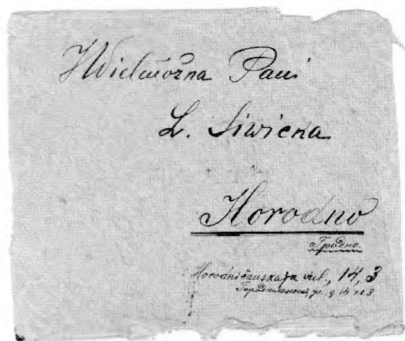 JWielmożna Pani
L. Siwicka
Horodno
Гродно.
Horodničanskaja vul., 14, 3
Городничанская ул., д. 14 кв 3